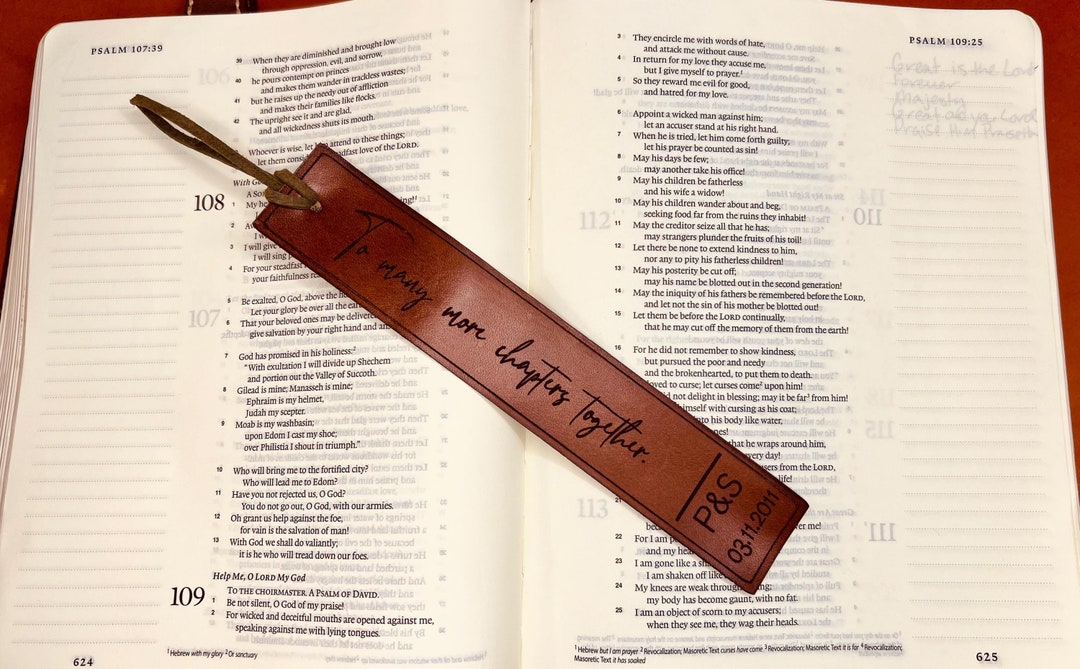 PSALM 107:39
39 When they are diminished and brought low
through oppression, evil, and sorrow,
40 he pours contempt on princes
and makes them wander in trackless wastes;
41 but he raises up the needy out of affliction
and makes their families like flocks.
42 The upright see it and are glad,
and all wickedness shuts its mouth.
Whoever is wise, let attend to these things;
let them steadfast love of the LORD.
With
108 A
1 My
2
3 I will give
I will sing
4 For your steadfast
your faithfulness
5 Be exalted, O God, above the
Let your glory be over all the
6 That your beloved ones may be delivered
give salvation by your right hand and
7 God has promised in his holiness:2
"With exultation I will divide up Shechem
and portion out the Valley of Succoth.
8 Gilead is mine; Manasseh is mine;
Ephraim is my helmet,
Judah my scepter.
9 Moab is my washbasin;
upon Edom I cast my shoe;
over Philistia I shout in triumph."
10 Who will bring me to the fortified city?
Who will lead me to Edom?
11 Have you not rejected us, O God?
You do not go out, O God, with our armies.
12 Oh grant us help against the foe,
for vain is the salvation of man!
13 With God we shall do valiantly;
it is he who will tread down our foes.
Help Me, O LORD My God
109 TO THE CHOIRMASTER. A PSALM OF DAVID.
1 Be not silent, O God of my praise!
2 For wicked and deceitful mouths are opened against me,
speaking against me with lying tongues.
1 Hebrew with my glory 2 Or sanctuary
624
To many more chapters together.
P&S
03.11.2011
PSALM 109:25
3 They encircle me with words of hate,
and attack me without cause.
4 In return for my love they accuse me,
but I give myself to prayer.1
5 So they reward me evil for good,
and hatred for my love.
6 Appoint a wicked man against him;
let an accuser stand at his right hand.
7 When he is tried, let him come forth guilty,
let his prayer be counted as sin!
8 May his days be few;
may another take his office!
9 May his children be fatherless
and his wife a widow!
10 May his children wander about and beg,
seeking food far from the ruins they inhabit!
11 May the creditor seize all that he has;
may strangers plunder the fruits of his toil!
12 Let there be none to extend kindness to him,
nor any to pity his fatherless children!
13 May his posterity be cut off;
may his name be blotted out in the second generation!
14 May the iniquity of his fathers be remembered before the LORD,
and let not the sin of his mother be blotted out!
15 Let them be before the LORD continually,
that he may cut off the memory of them from the earth!
16 For he did not remember to show kindness,
but pursued the poor and needy
and the brokenhearted, to put them to death.
to curse; let curses come2 upon him!
not delight in blessing; may it be far3 from him!
himself with cursing as his coat;
into his body like water,
that he wraps around him,
every day!
from the LORD,
life!
21
me!
22 For I am
and my
23 I am gone like a
I am shaken off like
24 My knees are weak through
my body has become gaunt, with no fat.
25 I am an object of scorn to my accusers;
when they see me, they wag their heads.
1 Hebrew but I am prayer 2 Revocalization; Masoretic Text curses have come 3 Revocalization; Masoretic Text it is far 4 Revocalization;
Masoretic Text it has soaked
625